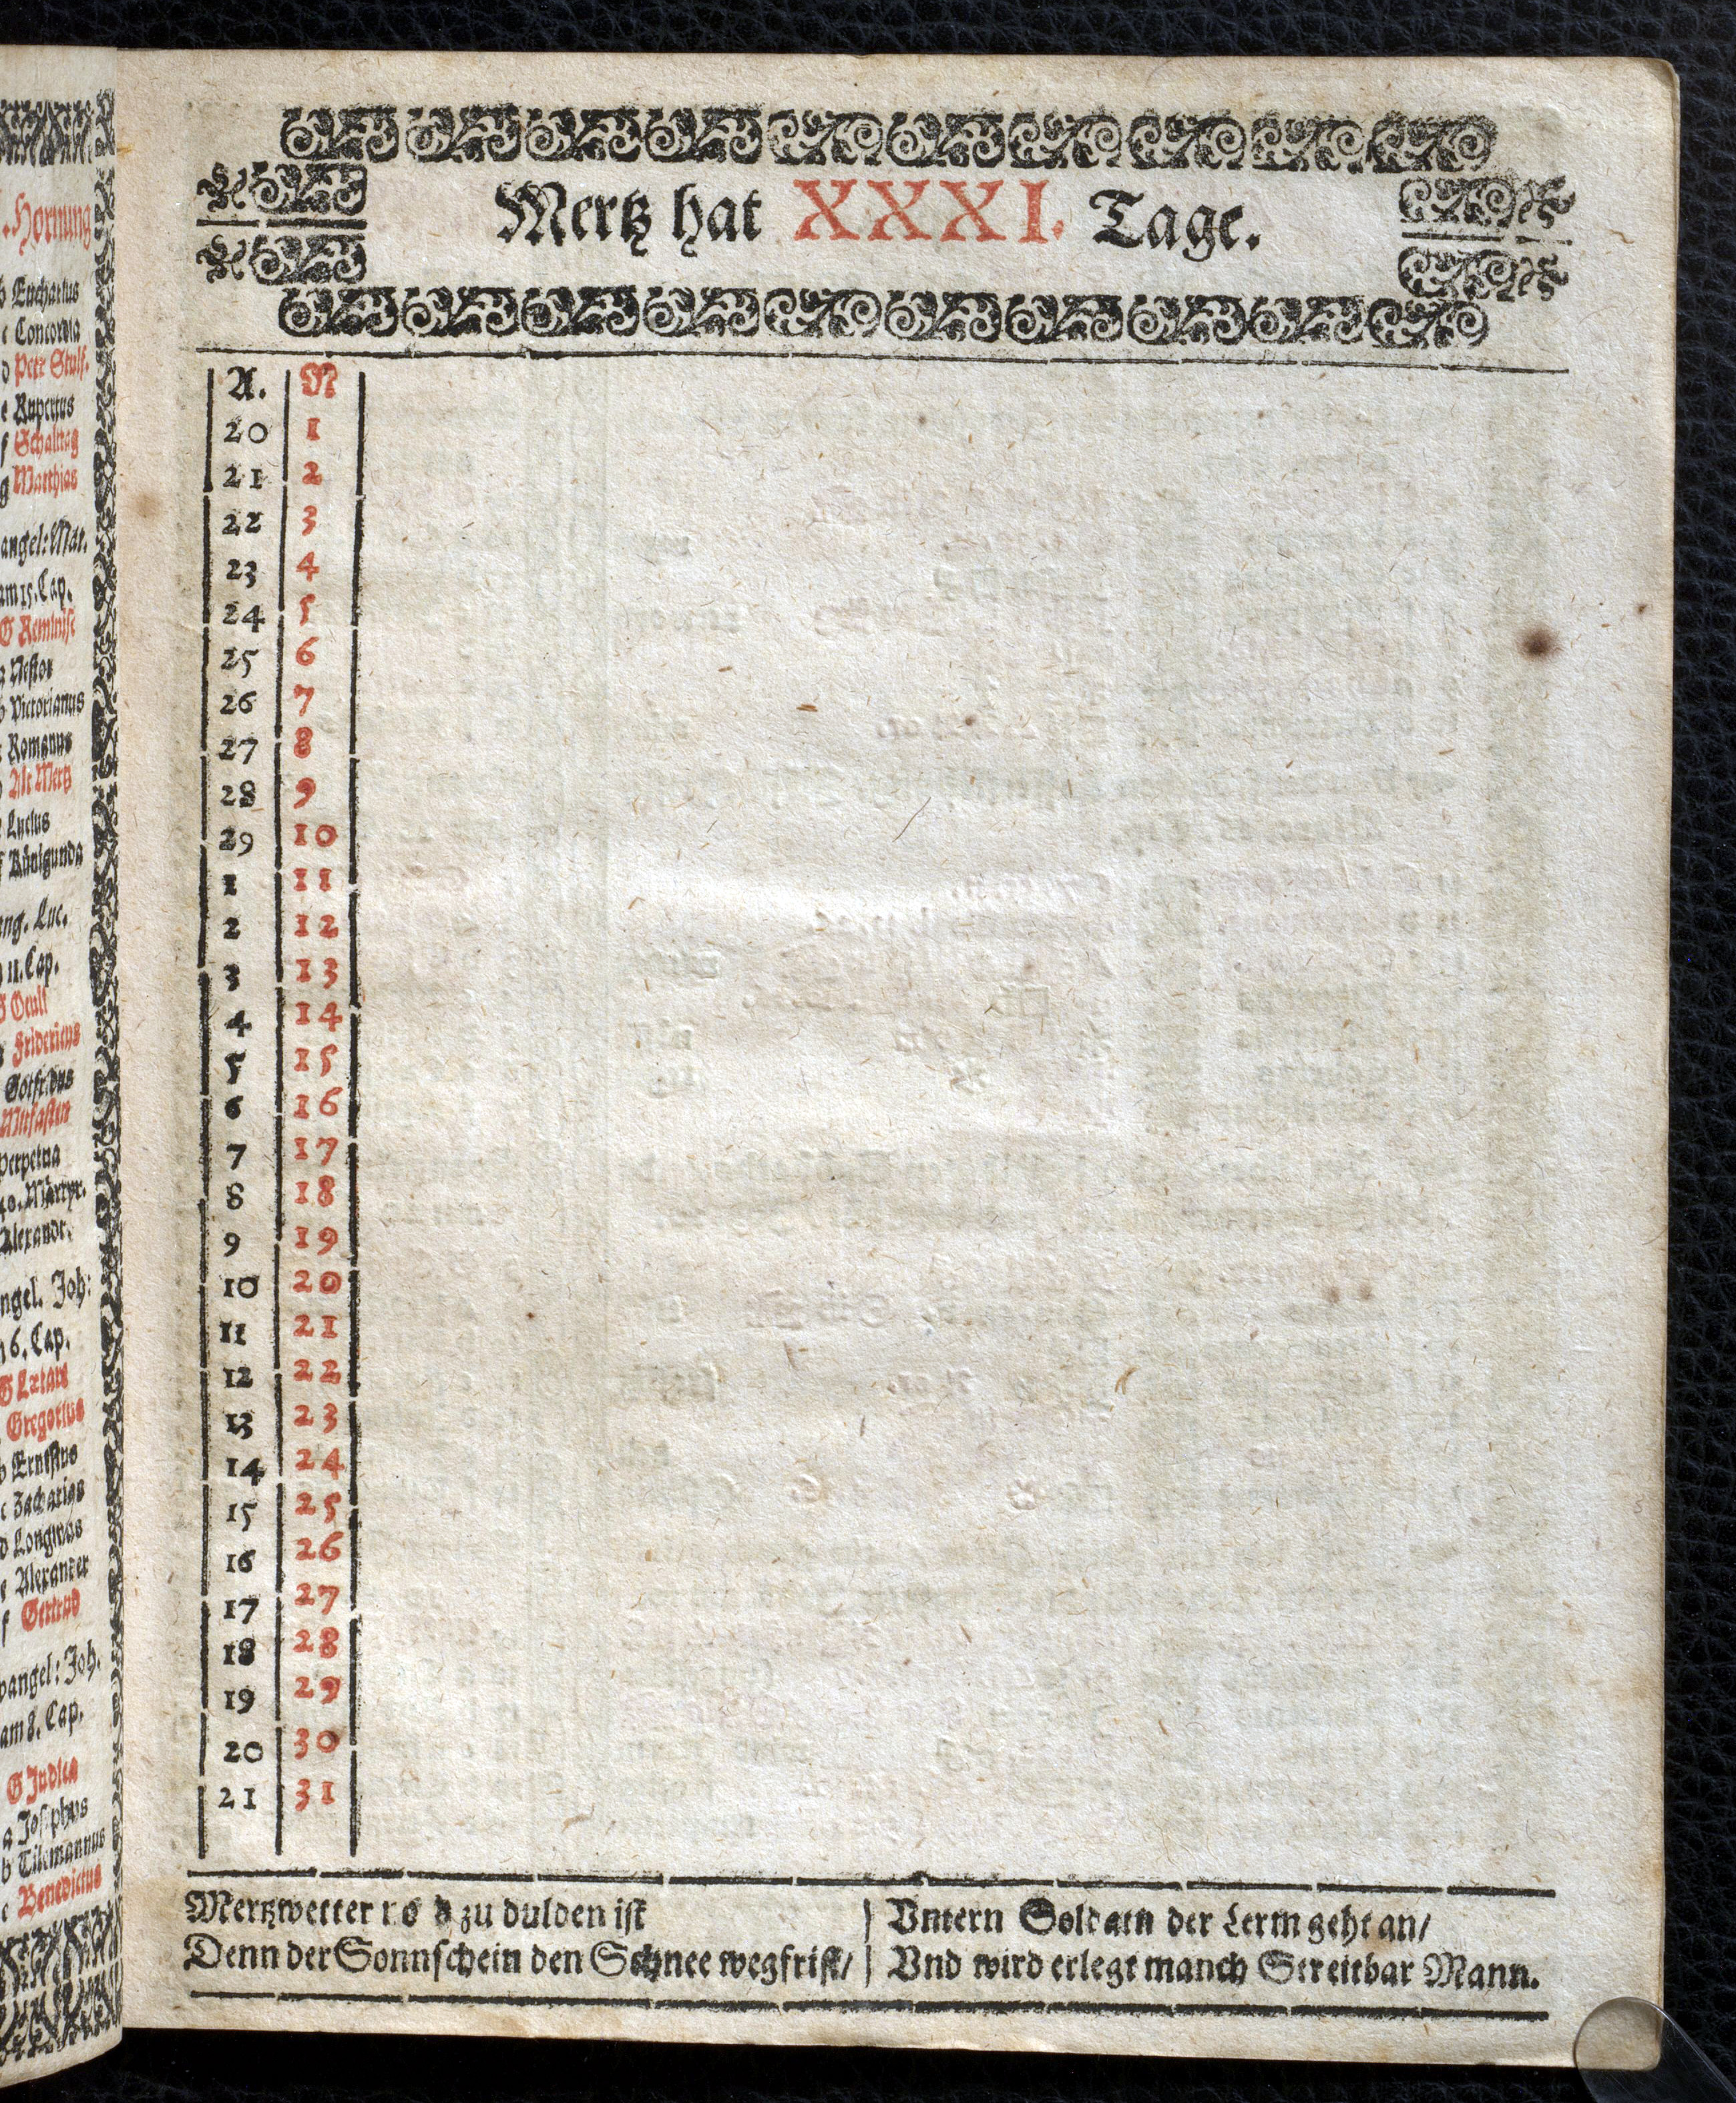 Hornung
Eucharius
c Concordia
d Petr Stulf.
e Rupertus
f Schaltag
g Matthias
angel: Mat.
am 15. Cap.
G Reminisc
a Nestor
b Victorianus
Romanus
Alt Mertz
Lucius
f Künigunda
ang. Luc.
11. Cap.
G Oculi
Fridericus
Gotfridus
Mitfasten
Perpetua
40. Märtyr.
Alexandr.
ngel. Joh:
6. Cap.
G Lætare
Gregorius
b Ernestus
c Zacharias
d Longinus
e Alexander
f Gertrud
vangel: Joh.
am 8. Cap.
G Judica
a Josephus
b Tilemannus
c Benedictus
Mertz hat XXXI. Tage.
A. N
20 1
21 2
22 3
23 4
24 5
25 6
26 7
27 8
28 9
29 10
1 11
2 12
3 13
4 14
5 15
6 16
7 17
8 18
9 19
10 20
11 21
12 22
13 23
14 24
15 25
16 26
17 27
18 28
19 29
20 30
21 31
Mertzwetter zu dulden ist
Denn der Sonnschein den Schnee wegfrist/
Vntern Soldatn der Lerm geht an/
Vnd wird erlegt manch Streitbar Mann.